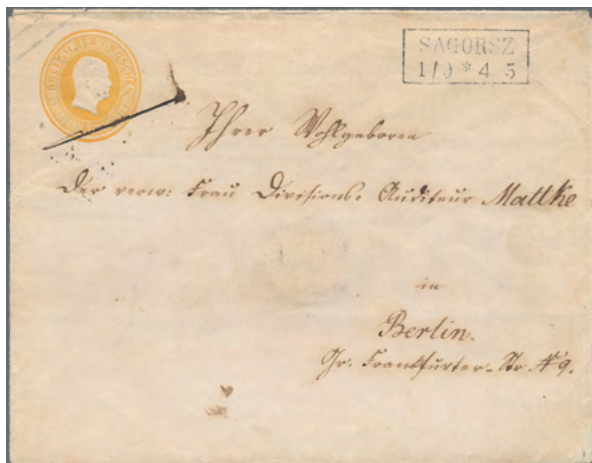 SAGORSZ
1/9 * 4 5
Ihrer Wohlgeboren
Der verw: Frau Divisions: Auditeur Mattke
in
Berlin.
Gr. Frankfurter-Str. N 9.